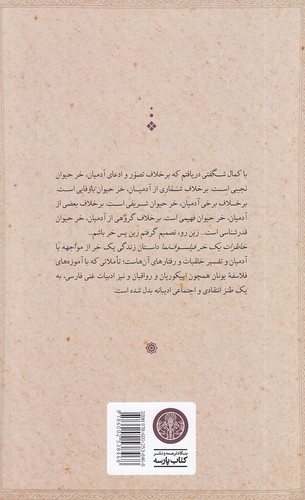 با کمال شگفتی دریافتم که برخلاف تصوّر و ادعای آدمیان، خر حیوان
نجیبی است. برخلاف شماری از آدمیان، خر حیوان باوفایی است.
برخلاف برخی آدمیان، خر حیوان شریفی است. برخلاف بعضی از
آدمیان، خر حیوان فهیمی است. برخلاف گروهی از آدمیان، خر حیوان
قدرشناسی است. زین رو، تصمیم گرفتم زین پس خر باشم...
خاطرات یک خر فیلسوف‌نما داستان زندگی یک خر از مواجهه با
آدمیان و تفسیر خلقیات و رفتارهای آن‌هاست؛ تأملاتی که با آموزه‌های
فلاسفهٔ یونان همچون اپیکوریان و رواقیان و نیز ادبیات غنی فارسی، به
یک طنز انتقادی و اجتماعی ادیبانه بدل شده است.
بنگاه ترجمه و نشر
کتاب پارسه